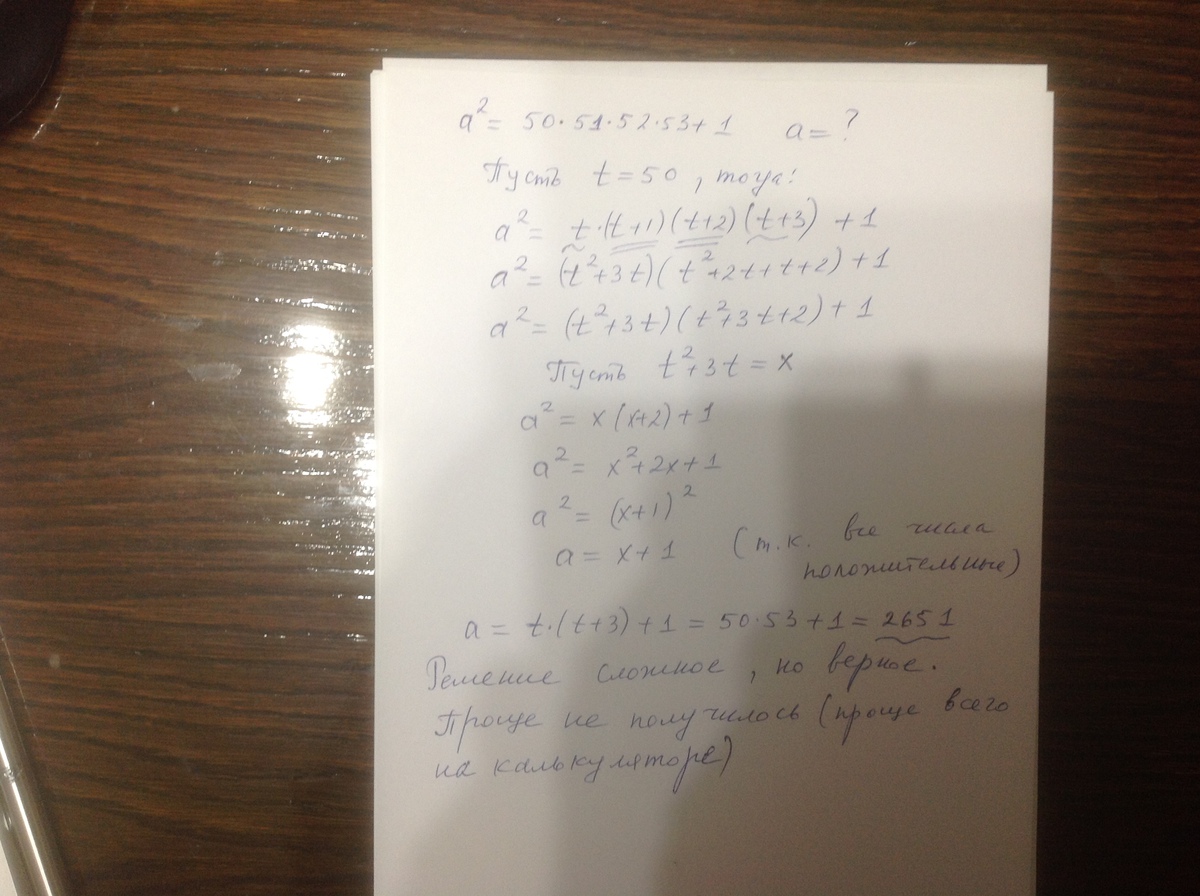 a² = 50·51·52·53+1 a = ?
Пусть t = 50, тогда:
a² = t·(t+1)(t+2)(t+3) + 1
a² = (t²+3t)(t²+2t+t+2)+1
a² = (t²+3t)(t²+3t+2)+1
Пусть t²+3t = x
a² = x(x+2)+1
a² = x²+2x+1
a² = (x+1)²
a = x+1 (т.к. все числа
положительные)
a = t·(t+3)+1 = 50·53+1 = 2651
Решение сложное, но верное.
Проще не получилось (проще всего
на калькуляторе)